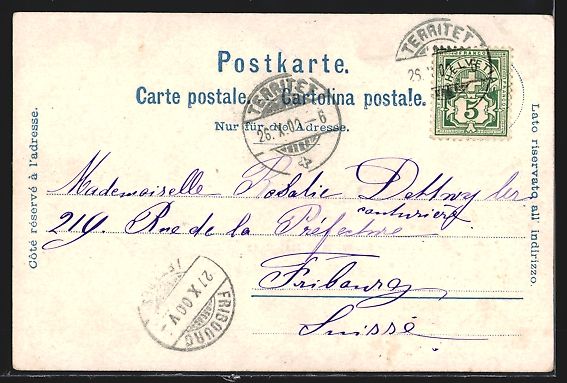 Postkarte.
Carte postale. Cartolina postale.
Nur für die Adresse.
Côté réservé à l'adresse.
Lato riservato all' indirizzo.
TERRITET
26. X.
FRANCO
HELVETIA
5
TERRITET
26. X. 00. – 6
Mademoiselle Rosalie Dettwyler
couturière
219. Rue de la Préfecture
Fribourg
Suisse
27. X. 00. V –
FRIBOURG